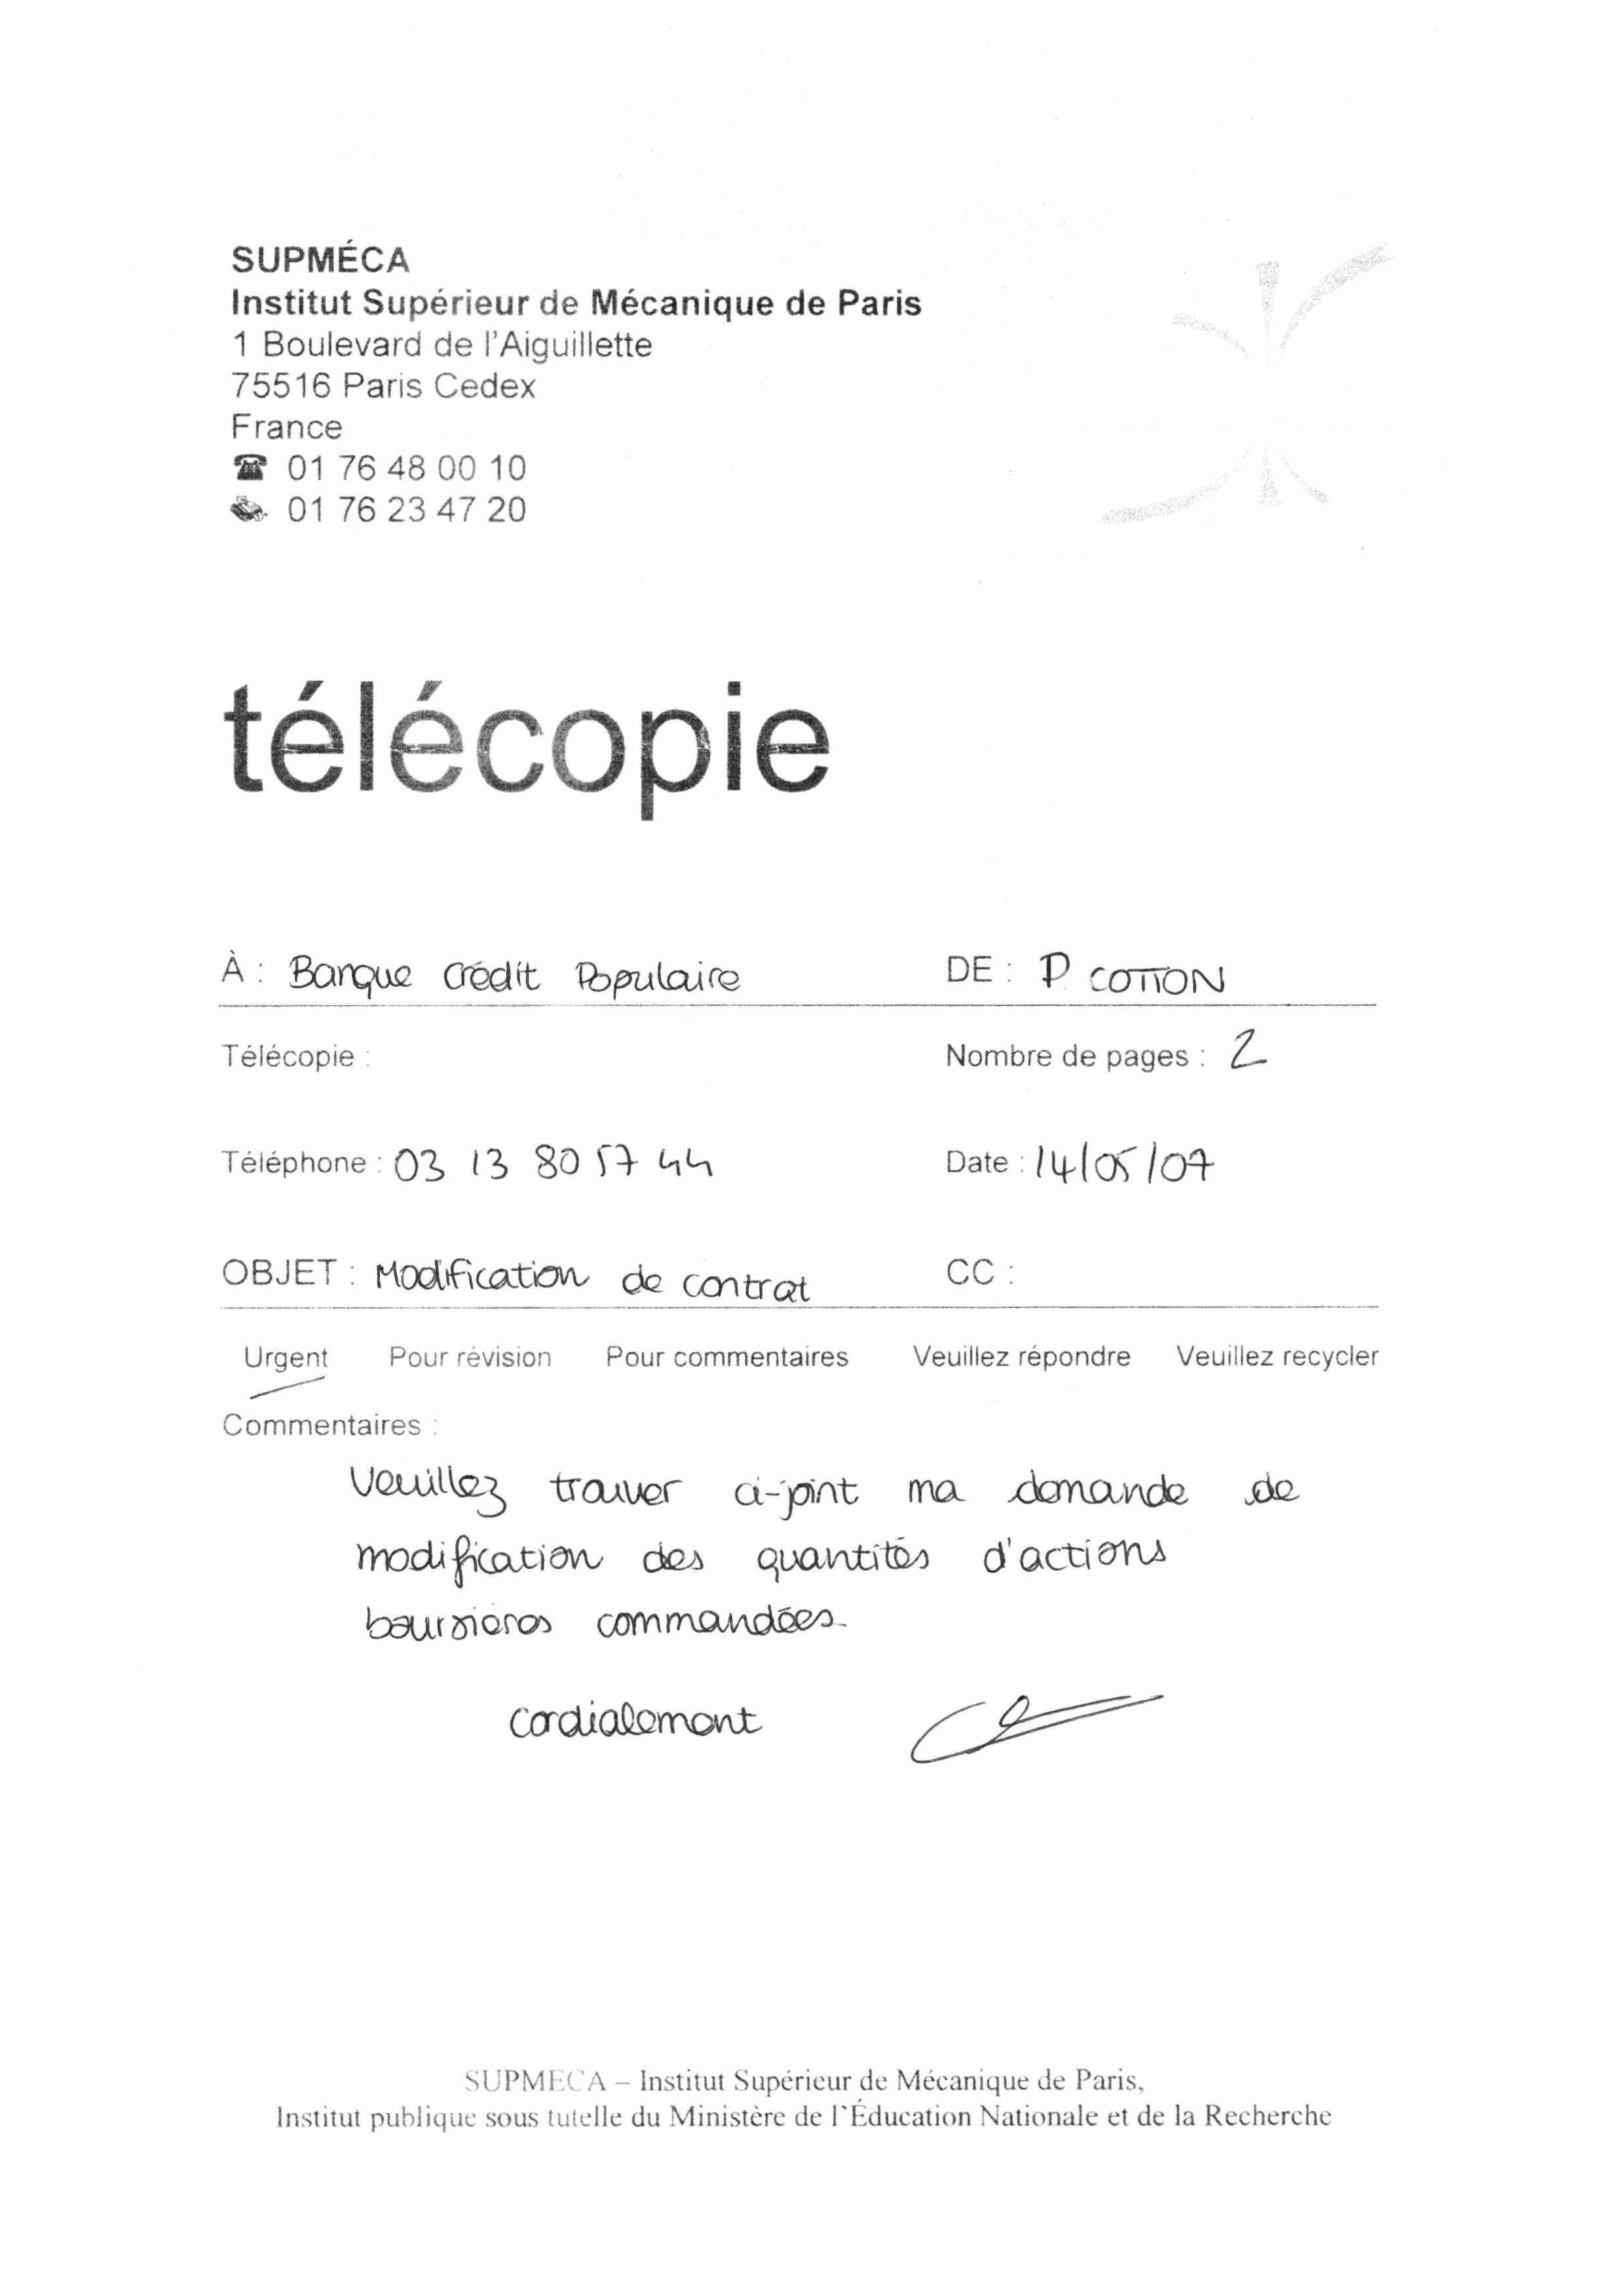 SUPMÉCA
Institut Supérieur de Mécanique de Paris
1 Boulevard de l'Aiguillette
75516 Paris Cedex
France
☎ 01 76 48 00 10
01 76 23 47 20
télécopie
À : Banque Crédit Populaire DE : P COTTON
Télécopie : Nombre de pages : 2
Téléphone : 03 13 80 57 44 Date : 14/05/07
OBJET : Modification de contrat CC :
Urgent Pour révision Pour commentaires Veuillez répondre Veuillez recycler
Commentaires :
Veuillez trouver ci-joint ma demande de
modification des quantités d'actions
boursières commandées
cordialement
SUPMECA – Institut Supérieur de Mécanique de Paris,
Institut publique sous tutelle du Ministère de l'Éducation Nationale et de la Recherche